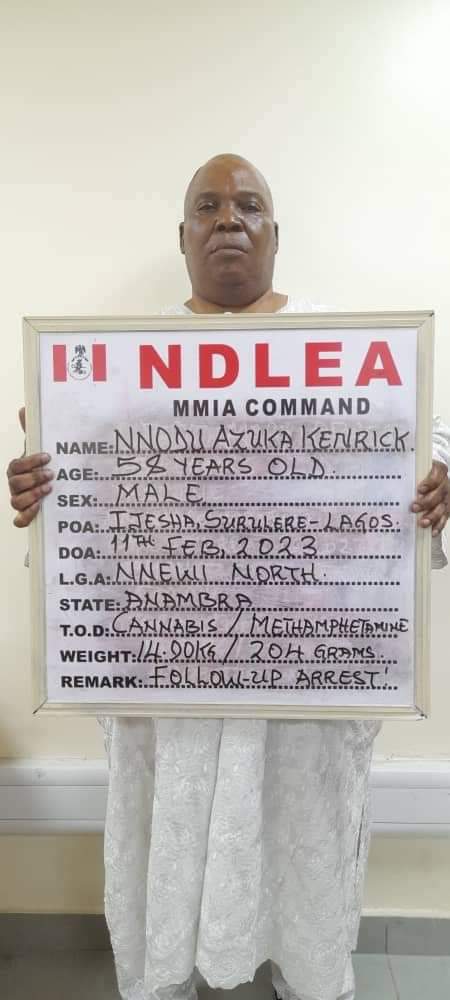 NDLEA
MMIA COMMAND
NAME: NNODU AZUKA KENRICK.
AGE: 58 YEARS OLD.
SEX: MALE
POA: IJESHA, SURULERE-LAGOS.
DOA: 11TH FEB, 2023
L.G.A: NNEWI NORTH.
STATE: ANAMBRA
T.O.D: CANNABIS/METHAMPHETAMINE
WEIGHT: 14.00KG/204 GRAMS.
REMARK: FOLLOW-UP ARREST!